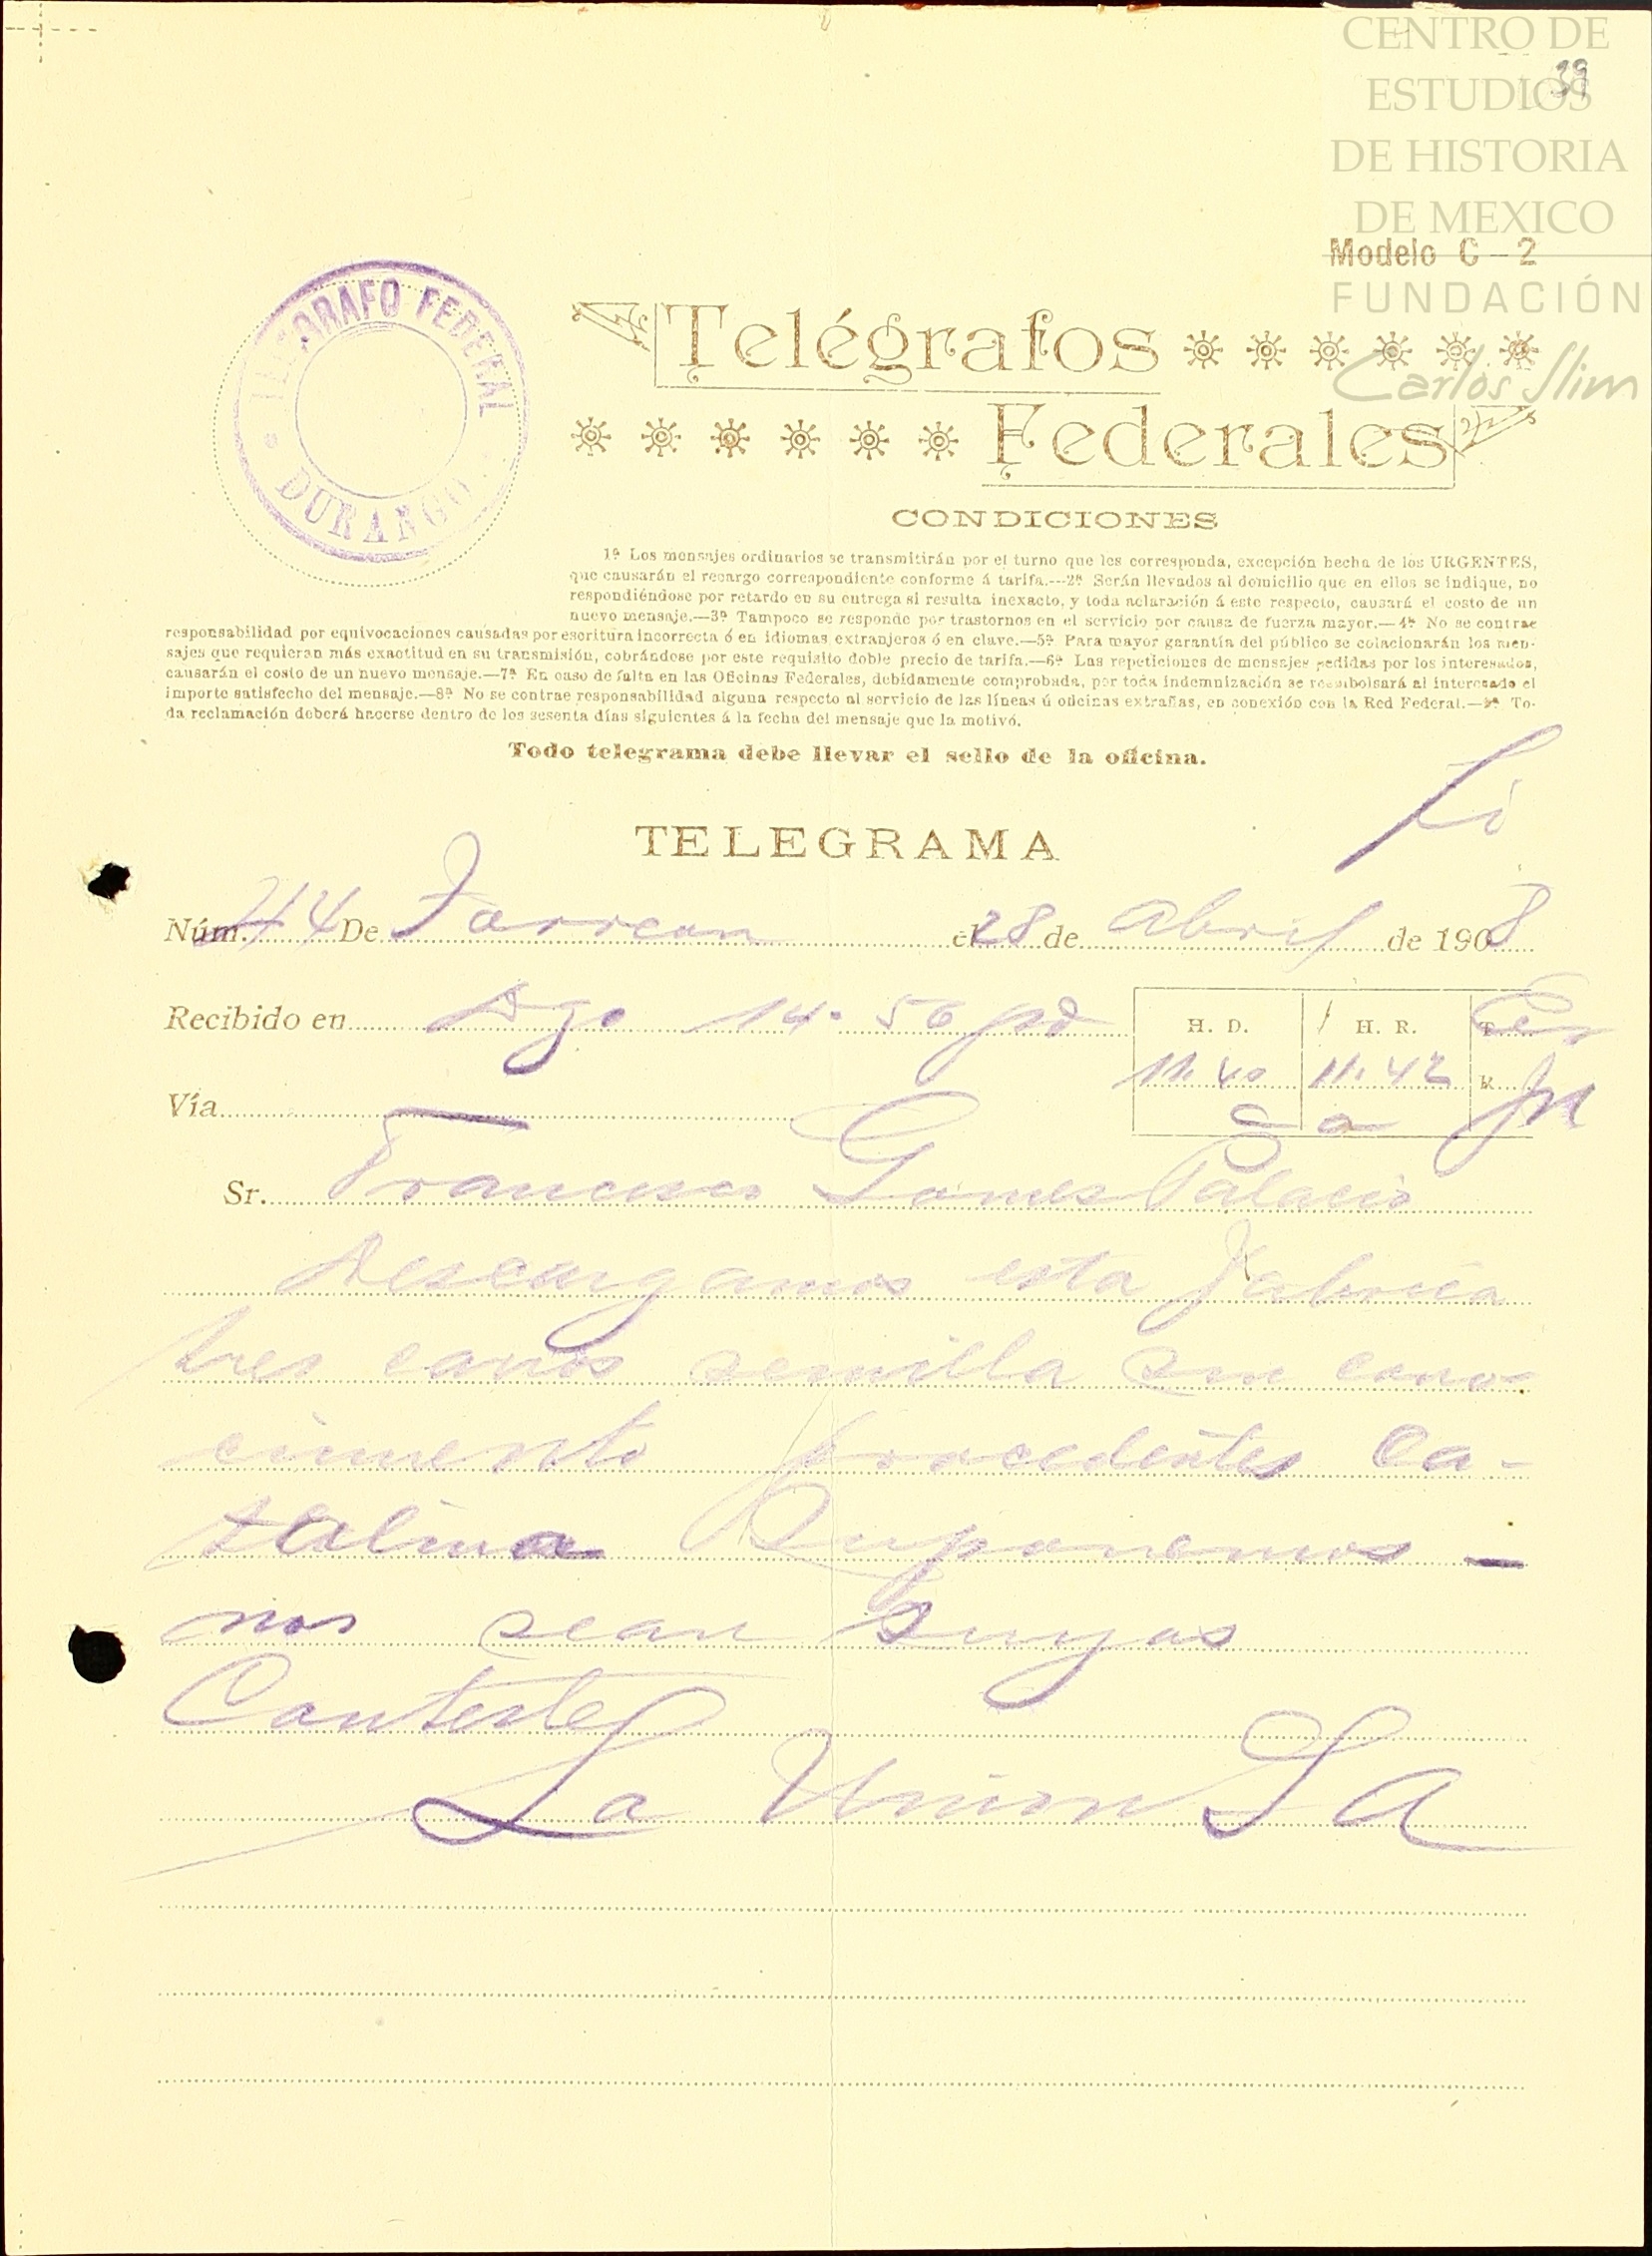 CENTRO DE
ESTUDIOS
DE HISTORIA
DE MEXICO
39
Modelo C-2
FUNDACIÓN
Carlos Slim
TELEGRAFO FEDERAL
DURANGO
Telégrafos
Federales
CONDICIONES
1ª Los mensajes ordinarios se transmitirán por el turno que les corresponda, excepción hecha de los URGENTES,
que causarán el recargo correspondiente conforme á tarifa.---2ª Serán llevados al domicilio que en ellos se indique, no
respondiéndose por retardo en su entrega si resulta inexacto, y toda aclaración á este respecto, causará el costo de un
nuevo mensaje.—3ª Tampoco se responde por trastornos en el servicio por causa de fuerza mayor.—4ª No se contrae
responsabilidad por equivocaciones causadas por escritura incorrecta ó en idiomas extranjeros ó en clave.—5ª Para mayor garantía del público se colacionarán los men-
sajes que requieran más exactitud en su transmisión, cobrándose por este requisito doble precio de tarifa.—6ª Las repeticiones de mensajes pedidas por los interesados,
causarán el costo de un nuevo mensaje.—7ª En caso de falta en las Oficinas Federales, debidamente comprobada, por toda indemnización se reembolsará al interesado el
importe satisfecho del mensaje.—8ª No se contrae responsabilidad alguna respecto al servicio de las líneas ú oficinas extrañas, en conexión con la Red Federal.—9ª To-
da reclamación deberá hacerse dentro de los sesenta días siguientes á la fecha del mensaje que la motivó.
Todo telegrama debe llevar el sello de la oficina.
TELEGRAMA
Núm. 44 De Torreon el 28 de Abril de 1908
Recibido en Dgo 14. 56 pd H. D. H. R. T
11.40 11.42 R
Vía a a
Sr. Francisco Gomes Palacio
Descargamos esta Fabrica
tres carros semilla sin cono-
cimiento procedentes Ca-
talina Suponemos -
nos sean suyos
Conteste
La Union S A